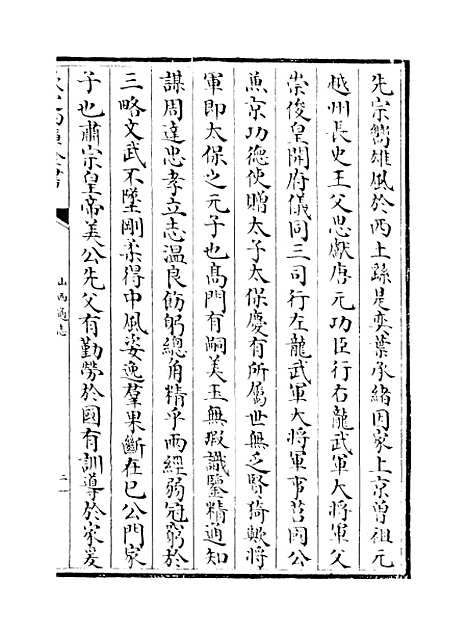 先宗嚮雄風於西上繇是奕葉承緒因家上京曽祖元
越州長史王父思獻唐元功臣行右龍武軍大將軍父
崇俊皇開府儀同三司行左龍武軍大將軍事莒國公
兼京功德使贈太子太保慶有所屬世無乏賢猗歟將
軍即太保之元子也髙門有嗣美玉無瑕識鑒精通知
謀周達忠孝立志温良飭躬總角精乎兩經弱冠窮於
三略文武不墜剛柔得中風姿逸羣果斷在已公門家
子也肅宗皇帝美公先父有勤勞於國有訓導於家爰
山西通志